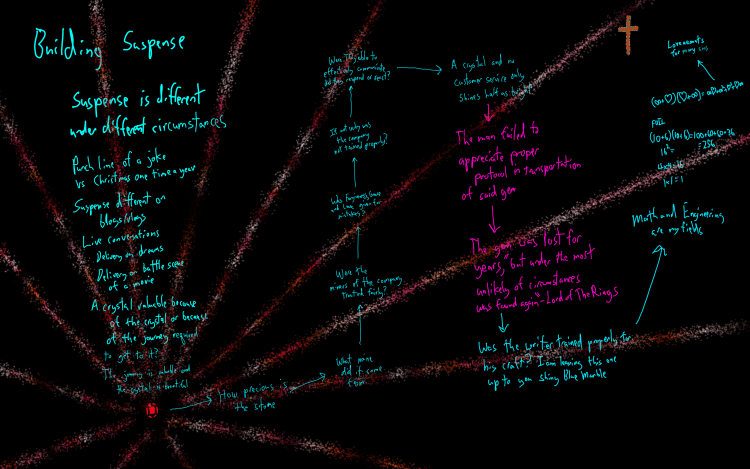 Building Suspense
Suspense is different
under different circumstances
Punch line of a joke
vs Christmas one time a year
Suspense different on
blogs/vlogs
Live conversations
Delivery on dreams
Delivery on battle scene
of a movie
A crystal valuable because
of the crystal or because
of the journey required
to get to it?
The journey is valuable and
the crystal is beautiful
How precious is
the stone
What mine
did it come
from
Were the
miners of the company
treated fairly?
Was forgiveness
and love given for
mistakes?
If not why was
the company
not trained properly?
Was I able to
effectively communicate
did they respond or react?
A crystal and no
customer service only
shines half as bright
The man failed to
appreciate proper
protocol in transportation
of said gem
"The gem was lost for
years, but under the most
unlikely of circumstances
was found again" - Lord of The Rings
Was the writer trained properly for
his craft? I am leaving this one
up to you shiny Blue Marble
Math and Engineering
are my fields
FOIL
(10+6)(10+6)=100+60+60+36
16²= =256
1×1=1
for many sins